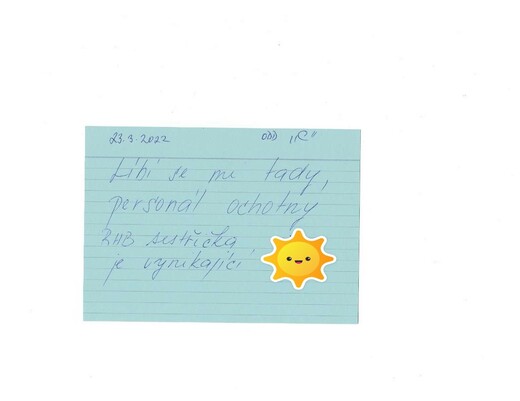 23.3.2022 ODD „C"
Líbí se mi tady,
personál ochotný
RHB sestřička
je vynikající